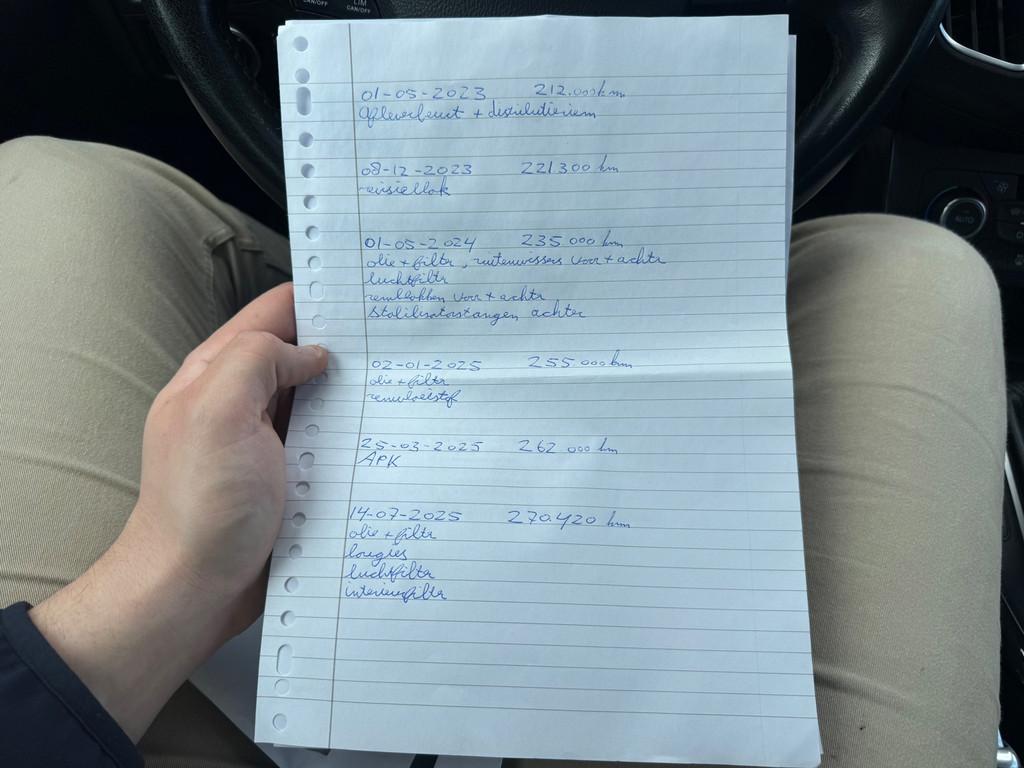 CAN/OFF LIM CAN/OFF
01-05-2023 212.000km
Afleverbeurt + distributieriem
08-12-2023 221.300 km
01-05-2024 235.000 km
olie + filter, ruitenwissers voor + achter
luchtfilter
remblokken voor + achter
Stabilisatorstangen achter
02-01-2025 255.000km
olie + filter
remvloeistof
25-03-2025 262.000 km
APK
14-07-2025 270.420 km
olie + filter
luchtfilter
interieurfilter
AUTO